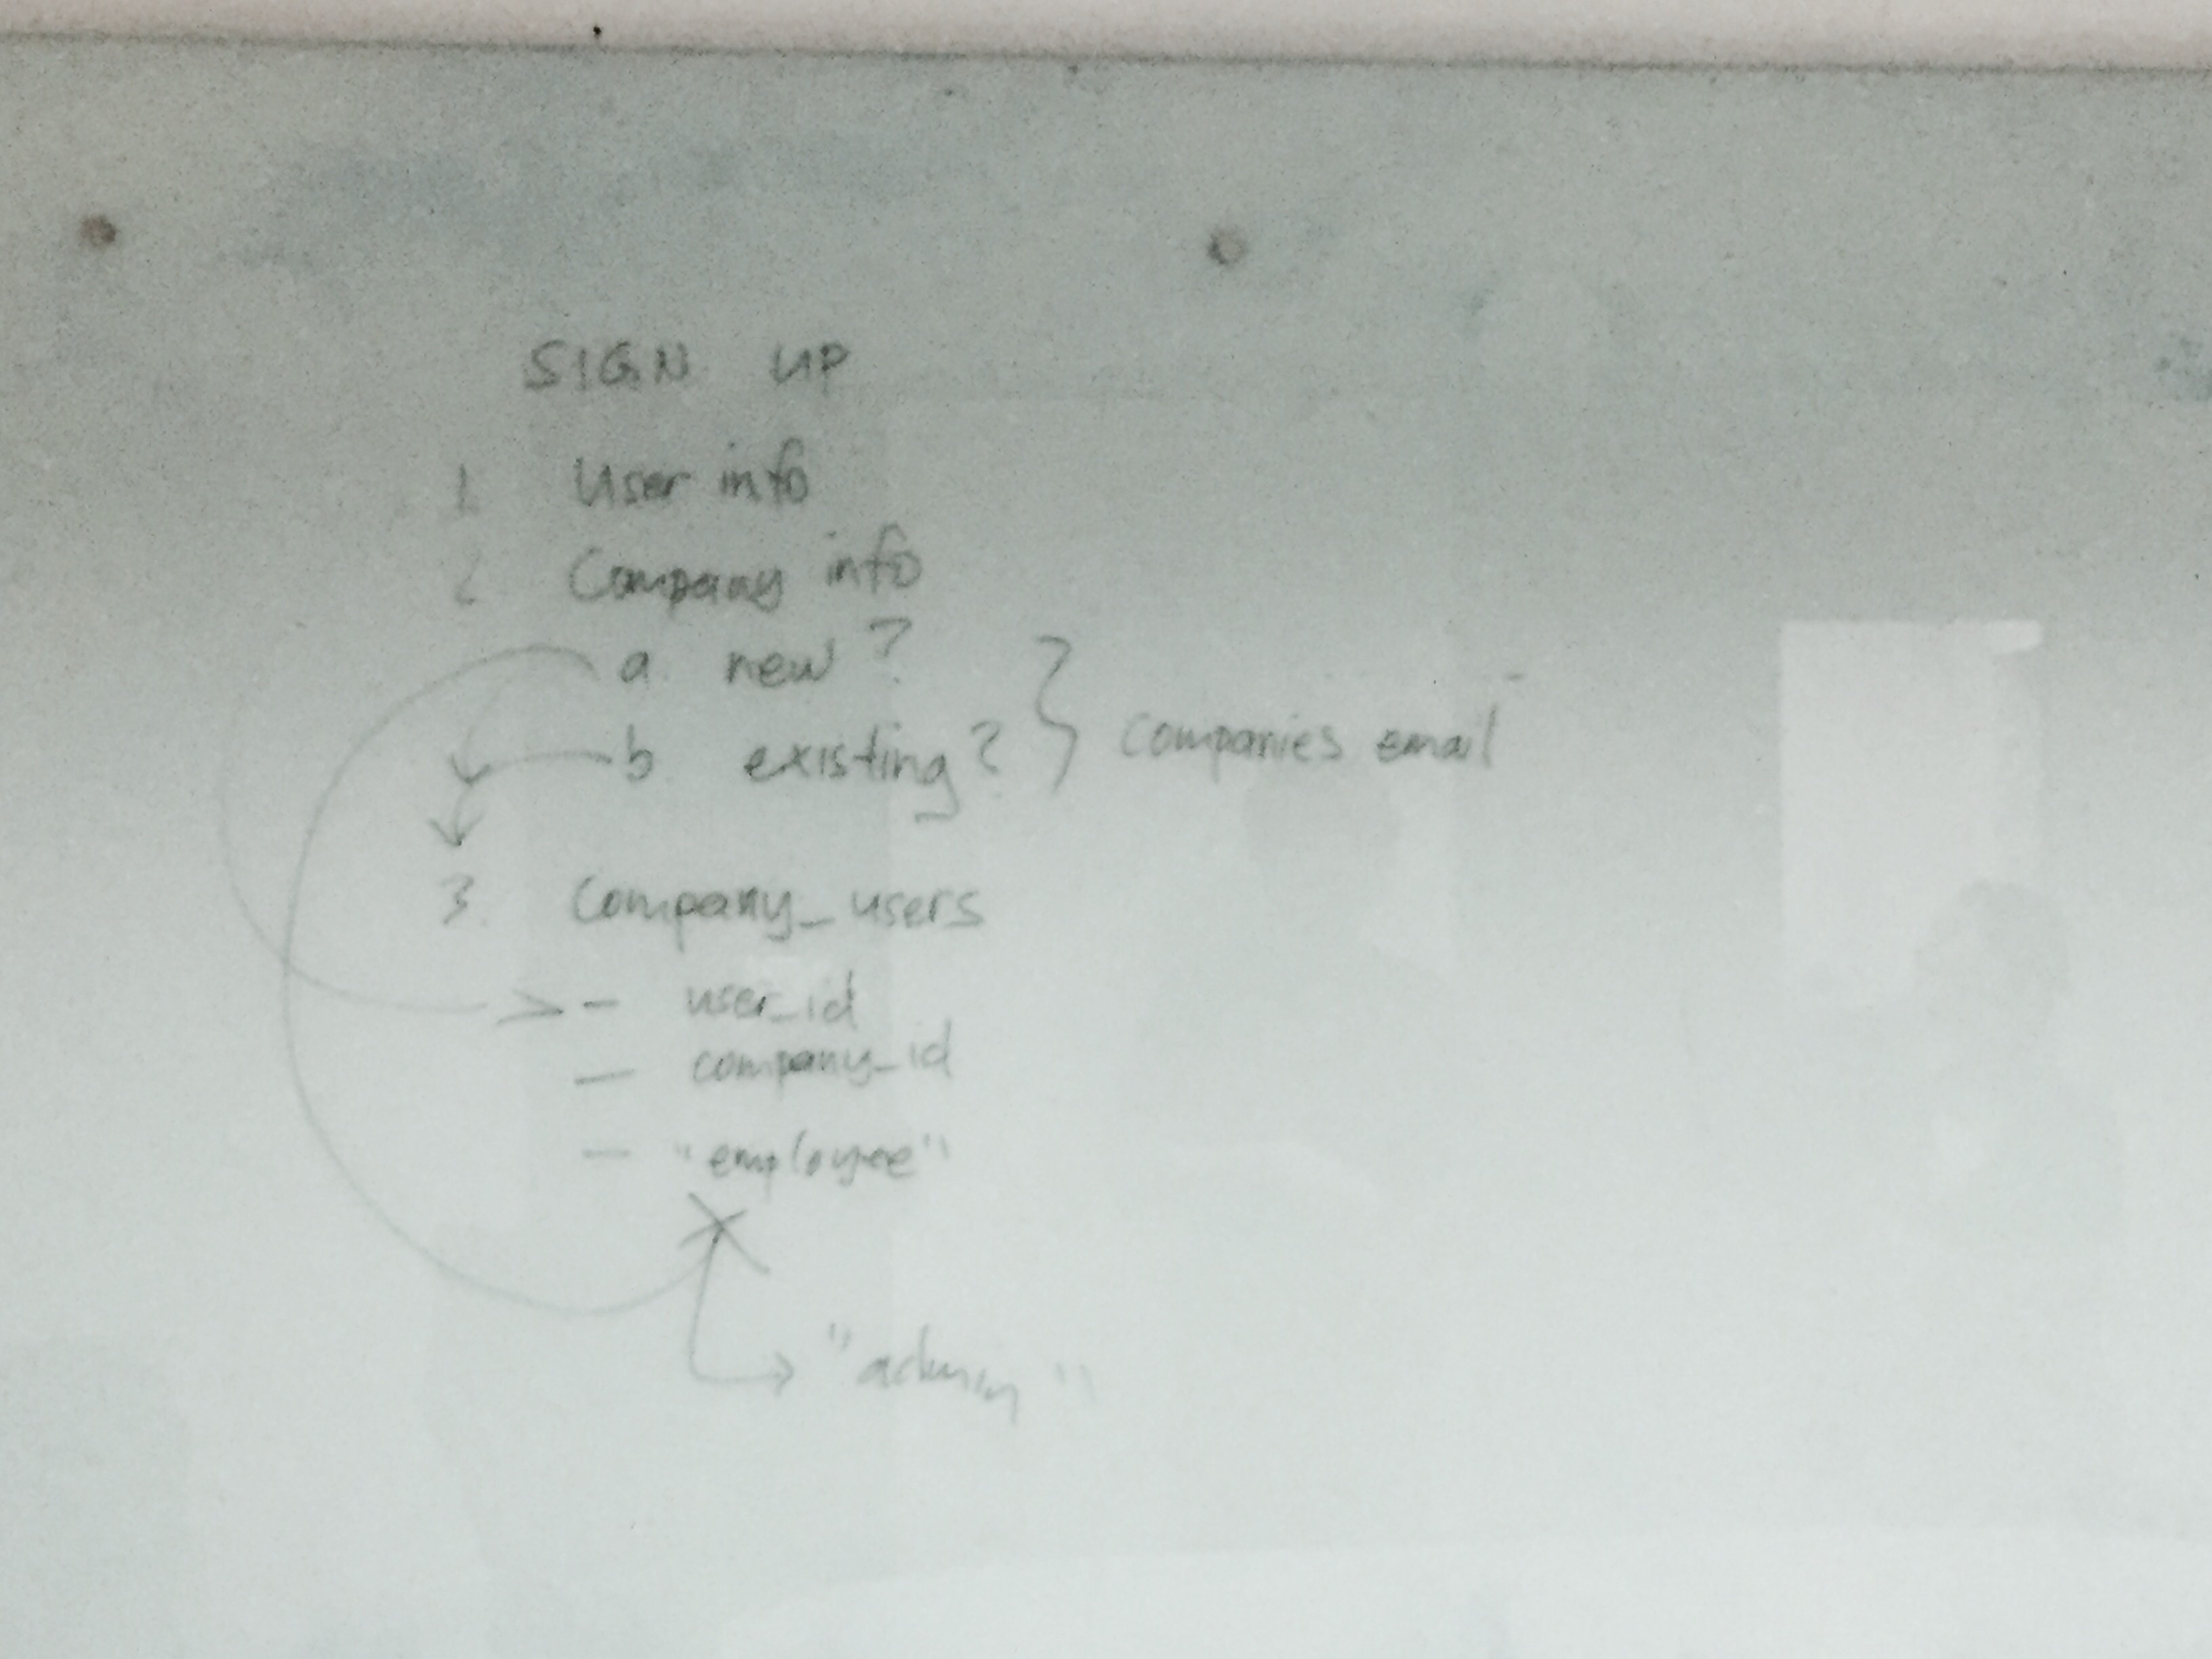 SIGN UP
1 User info
2 Company info
a. new?
b. existing? } companies email
3. Company_users
- user_id
- company_id
- "employee"
"admin"